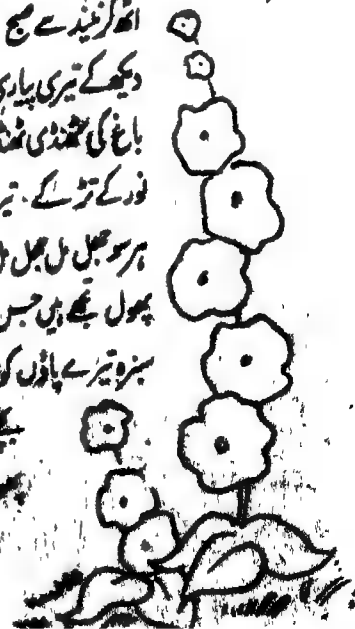 اٹھ کر نیند سے صبح
دیکھ کے تیری پیاری
باغ کی ٹھنڈی ٹھنڈ
نور کے تڑکے تیر
ہر سو جھل مل جھل مل
پھول تجھے ہیں حسن
سبزہ تیرے پاؤں کو